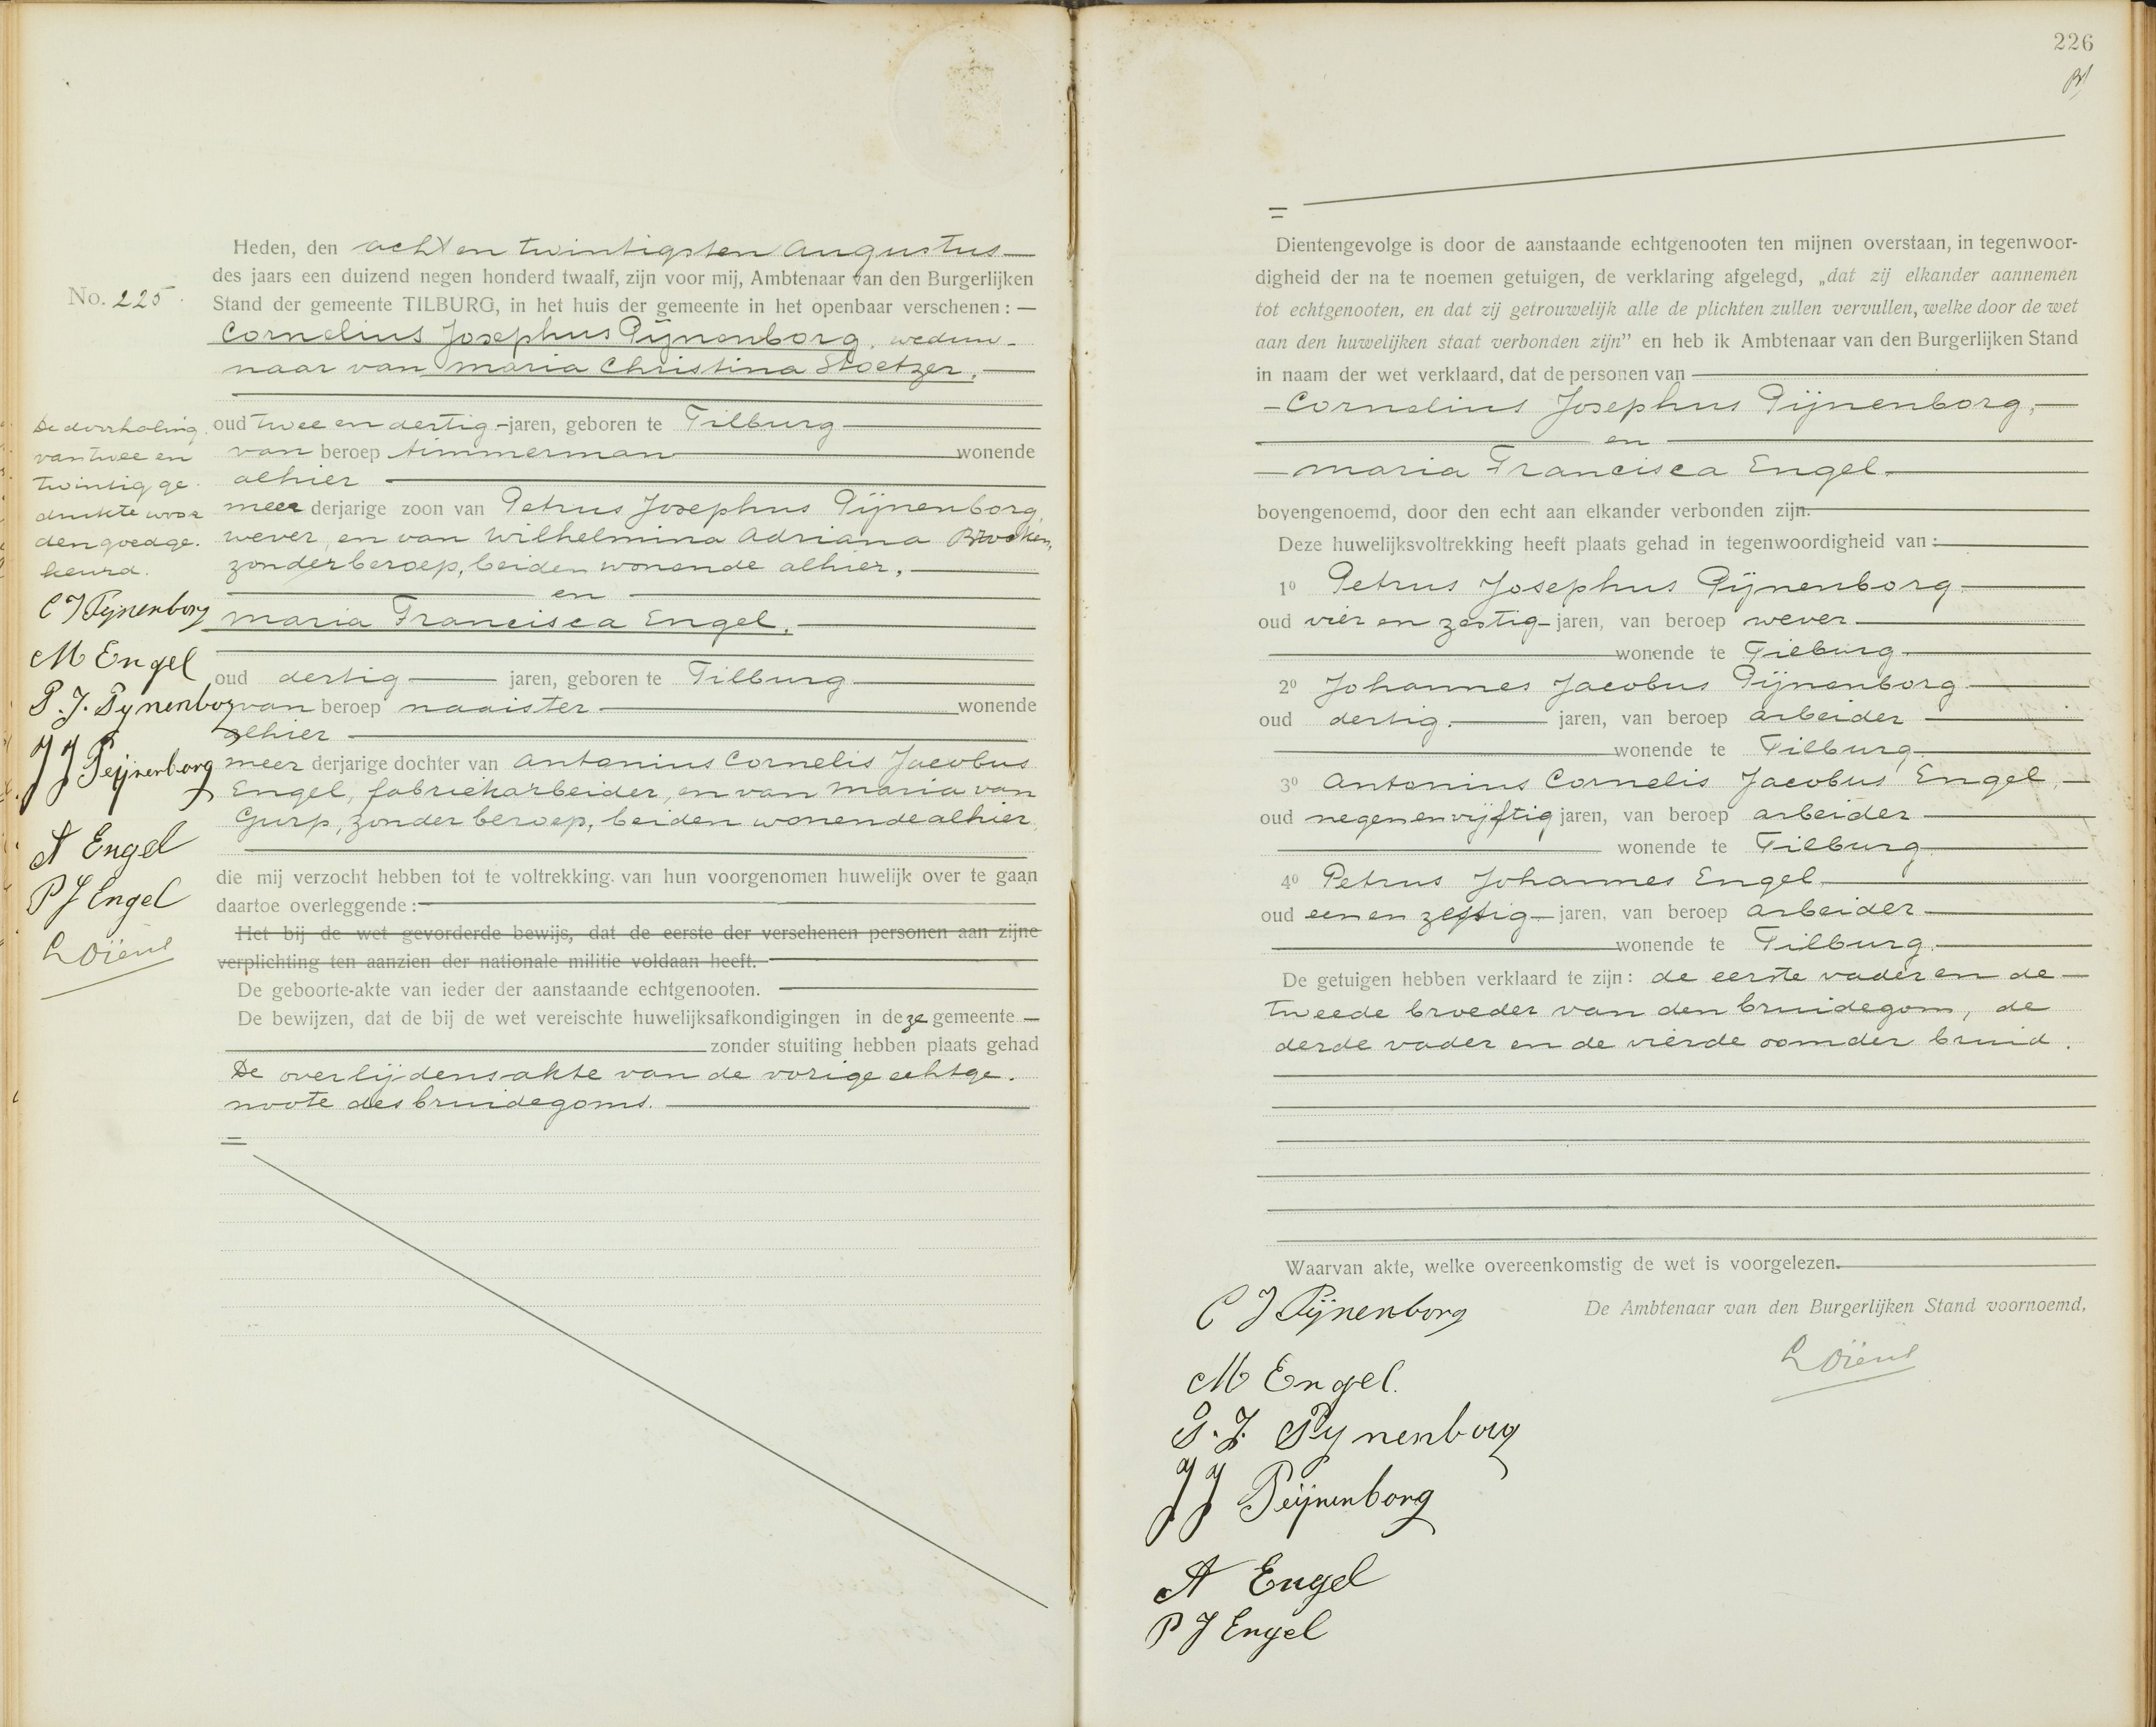 226
No. 225.
Heden, den acht en twintigsten Augustus
des jaars een duizend negen honderd twaalf, zijn voor mij, Ambtenaar van den Burgerlijken
Stand der gemeente TILBURG, in het huis der gemeente in het openbaar verschenen: —
Cornelius Josephus Pijnenborg, weduw-
naar van Maria Christina Stoetzer,
oud twee en dertig jaren, geboren te Tilburg
van beroep timmerman wonende
alhier
meerderjarige zoon van Petrus Josephus Pijnenborg,
wever, en van Wilhelmina Adriana Brocken,
zonder beroep, beiden wonende alhier,
en
Maria Francisca Engel,
oud dertig jaren, geboren te Tilburg
van beroep naaister wonende
alhier
meerderjarige dochter van Antonius Cornelis Jacobus
Engel, fabriekarbeider, en van Maria van
Gurp, zonder beroep, beiden wonende alhier,
die mij verzocht hebben tot te voltrekking van hun voorgenomen huwelijk over te gaan
daartoe overleggende:
Het bij de wet gevorderde bewijs, dat de eerste der verschenen personen aan zijne
verplichting ten aanzien der nationale militie voldaan heeft.
De geboorte-akte van ieder der aanstaande echtgenooten.
De bewijzen, dat de bij de wet vereischte huwelijksafkondigingen in deze gemeente
zonder stuiting hebben plaats gehad
De overlijdensakte van de vorige echtge-
noote des bruidegoms.
De doorhaling
van twee en
twintig ge-
drukte woor
den goedge-
keurd.
C J Pijnenborg
M Engel
P. J. Pynenborg
J J Peijnenborg
A Engel
P J Engel
Dientengevolge is door de aanstaande echtgenooten ten mijnen overstaan, in tegenwoor-
digheid der na te noemen getuigen, de verklaring afgelegd, „dat zij elkander aannemen
tot echtgenooten, en dat zij getrouwelijk alle de plichten zullen vervullen, welke door de wet
aan den huwelijken staat verbonden zijn" en heb ik Ambtenaar van den Burgerlijken Stand
in naam der wet verklaard, dat de personen van
Cornelius Josephus Pijnenborg,
en
Maria Francisca Engel
bovengenoemd, door den echt aan elkander verbonden zijn.
Deze huwelijksvoltrekking heeft plaats gehad in tegenwoordigheid van:
1o Petrus Josephus Pijnenborg
oud vier en zestig jaren, van beroep wever
wonende te Tilburg
2o Johannes Jacobus Pijnenborg
oud dertig jaren, van beroep arbeider
wonende te Tilburg
3o Antonius Cornelis Jacobus Engel,
oud negen en vijftig jaren, van beroep arbeider
wonende te Tilburg
4o Petrus Johannes Engel
oud een en zestig jaren, van beroep arbeider
wonende te Tilburg.
De getuigen hebben verklaard te zijn: de eerste vader en de
tweede broeder van den bruidegom, de
derde vader en de vierde oom der bruid.
Waarvan akte, welke overeenkomstig de wet is voorgelezen.
De Ambtenaar van den Burgerlijken Stand voornoemd,
C J Pijnenborg
M Engel.
P. J. Pynenborg
J J Peijnenborg
A Engel
P J Engel